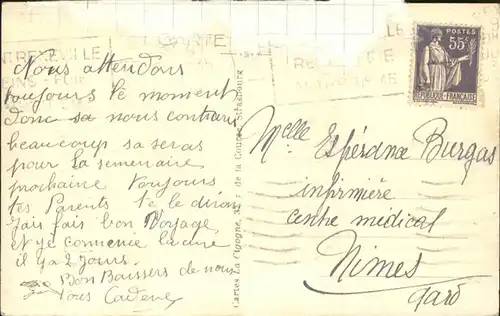 Nous attendons
toujours le moment
Donc sa nous contrari
beaucoup sa seras
pour la semenaire
prochaine toujours
tes Parents te le diron
jais fais bon Voyage
et je comence la cure
il y a 2 jours.
Bon Baissers de nous
tous Cadene
Cartes La Cigogne, de la Course, Strasbourg
POSTES
55c
REPUBLIQUE FRANÇAISE
Melle Espérance Burgas
infirmière
centre medical
Nimes
Gard